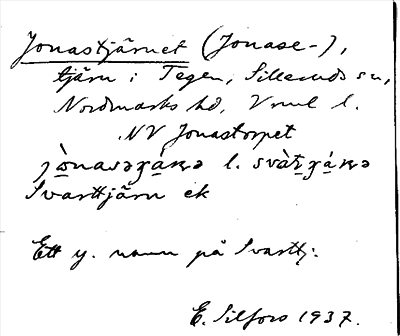 Jonastjärnet (Jonase-),
tjärn i Tegen, Sillerud sn,
Nordmarks hd, Vrml l.
NV Jonastorpet
Svarttjärn ek
Ett y. namn på Svarttj.
E. Silfors 1937.